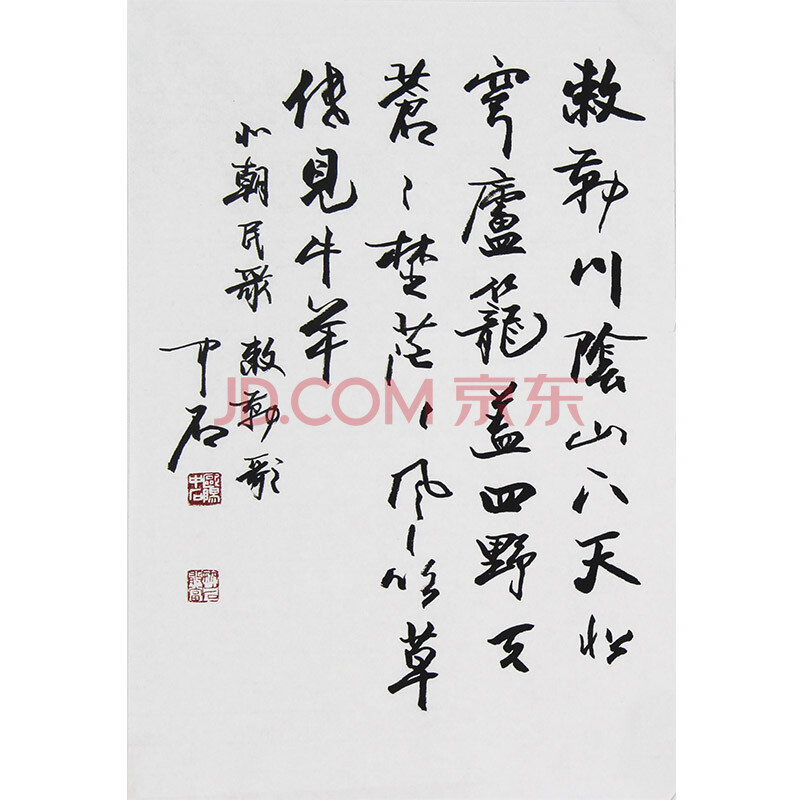 敕勒川陰山下天似
穹廬籠盖四野天
蒼〻埜茫〻風吹草
低見牛羊
北朝民歌 敕勒歌
中石
歐陽中石
JD.COM 京东